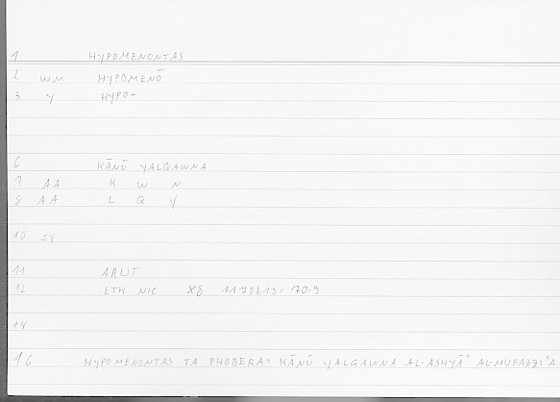 1 HYPOMENONTAS
2 WM HYPOMENŌ
3 Y HYPO-
6 KĀNŪ YALQAWNA
7 AA K W N
8 AA L Q Y
10 JY
11 ARIJT
12 ETH NIC
14
16 HYPOMENONTAS TA PHOBERA: KĀNŪ YALQAWNA AL-ASHYĀʾ AL-MUFAZZIʿA